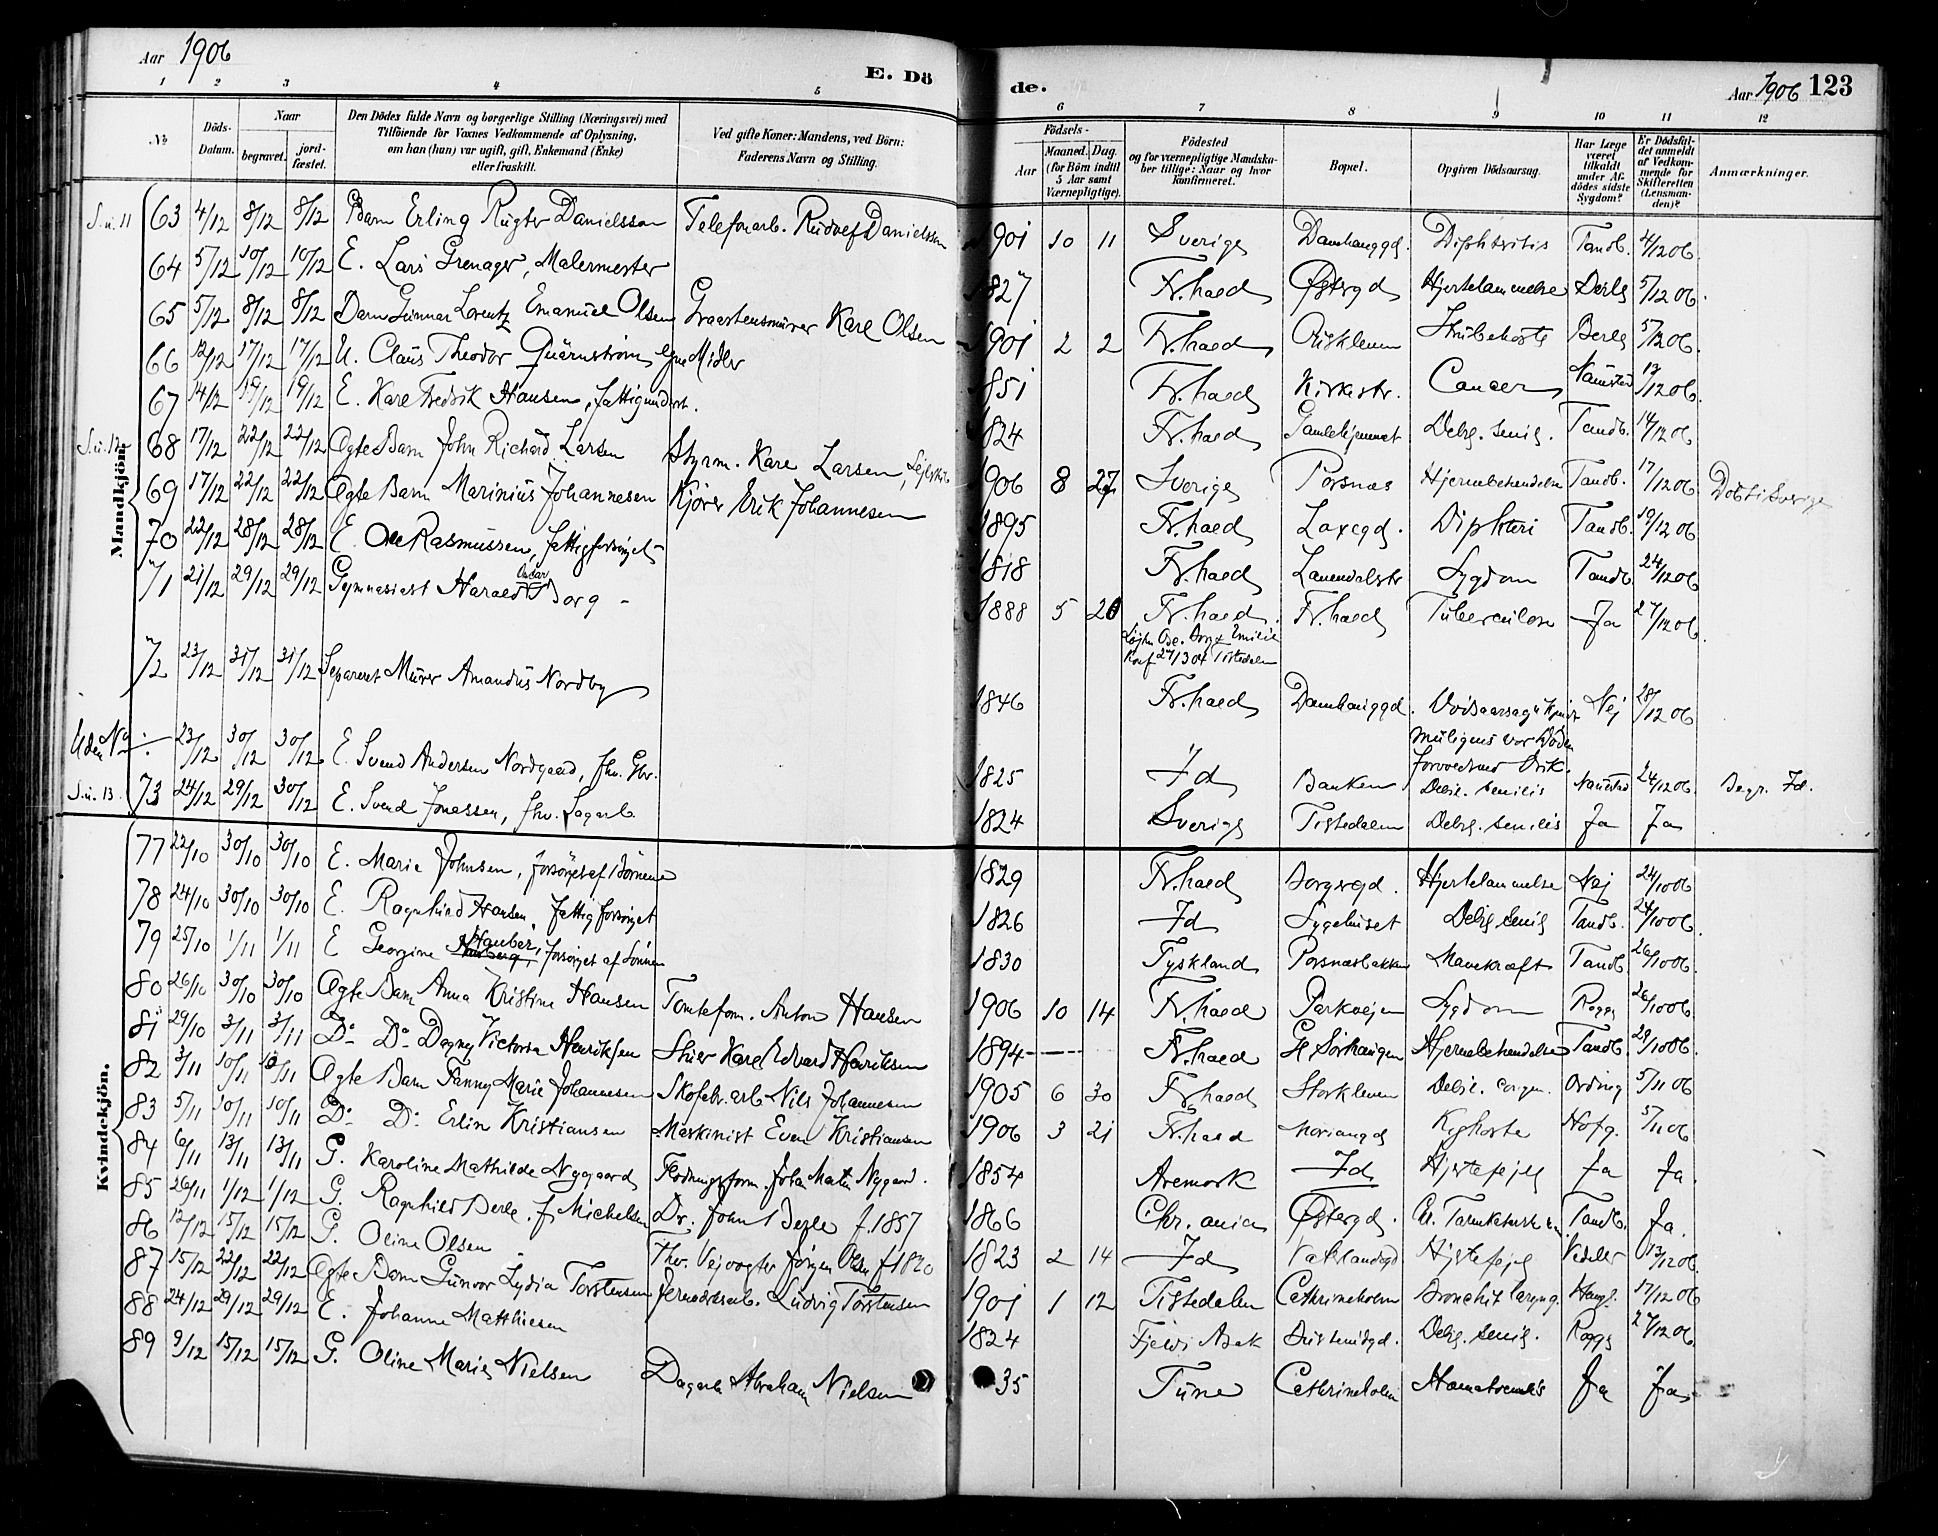 Aar 1906
E. Dö
de.
Aar 1906 123
1 2 3 4 5 6 7 8 9 10 11 12
No
Döds-Datum.
Naar
begravet.
jordfæstet.
Den Dödes fulde Navn og borgerlige Stilling (Næringsvei) med
Tilföiende for Voxnes Vedkommende af Oplysning,
om han (hun) var ugift, gift, Enkemand (Enke)
eller fraskilt.
Ved gifte Koner: Mandens, ved Börn:
Faderens Navn og Stilling.
Födsels-
Aar
Maaned. Dag.
(for Börn indtil
5 Aar samt
Værnepligtige).
Födested
og for værnepligtige Mandskaber tillige: Naar og hvor
Konfirmeret.
Bopæl.
Opgiven Dödsaarsag.
Har Læge været tilkaldt under Afdödes sidste Sygdom?
Er Dödsfaldet anmeldt af Vedkommende for Skifteretten (Lensmanden)?
Anmærkninger.
Mandkjön.
S.u. 11 63 4/12 8/12 8/12 Barn Erling Danielsson Telefonarb. Danielsson 1901 10 11 Sverige Damhauggd. Diphteritis Tandb. 4/12 06.
64 5/12 10/12 10/12 E. Lars Grenager, Malermester 1827 Fr.hald Østergd Hjertelammelse 5/12 06.
65 5/12 8/12 8/12 Barn Gunnar Lorentz Emanuel Olsen Graastensmurer Karl Olsen 1901 2 2 Fr.hald Strubehoste 5/12 06.
66 12/12 17/12 17/12 U. Claus Theodor Quärnström, egne Midler 1851 Fr.hald Kirkestr. Cancer 12/12 06.
67 14/12 19/12 19/12 E. Karl Fredrik Hansen, fattigunderst. 1824 Fr.hald Debil. senil. Tandb. 14/12 06
S.u. 12 68 17/12 22/12 22/12 Ægte Barn John Richard Larsen Styrm. Karl Larsen, 1906 8 27 Sverige Porsnes Hjernebetændelse Tandb. 17/12 06 Död i Sverige
69 17/12 22/12 22/12 Ægte Barn Marinius Johannesen Kjörer Erik Johannesen 1895 Fr.hald Laxegd. Difteri Tandb. 19/12 06
70 22/12 28/12 28/12 E. Ole Rasmussen, fattigforsörget 1818 Fr.hald Sygdom Tandb. 24/12 06
71 21/12 29/12 29/12 Gymnasiast Harald Oscar Borg 1888 5 20 Fr.hald. Fr.hald Tuberculose Ja 27/12 06.
Konf 2/1304 Tistedalen
72 23/12 31/12 31/12 Separeret Murer Amandus Nordby 1846 Fr.hald Damhauggd. Nej 28/12 06
muligens var Döden
Uden No 23/12 30/12 30/12 E. Svend Andersen Nordgaard, fhv. Gbr. 1825 Id Banken Debil. senilis 24/12 06. Begr. Id.
S.u. 13. 73 24/12 29/12 30/12 E. Svend Jonassen, fhv. Sagarb. 1824 Sverige Tistedalen Debil. senilis Ja Ja
Kvindekjön.
77 22/10 30/10 30/10 E. Marie Johnsen, forsörget af Börnene 1829 Fr.hald Borgergd. Hjertelammelse Nej 24/10 06
78 24/10 30/10 30/10 E. Ragnhild Hansen, fattigforsörget 1826 Id Sygehuset Debil. senil Tandb. 24/10 06.
79 25/10 1/11 1/11 E Georgine Hauber, forsörget af Sönnen 1830 Tyskland Porsnesbakken Mavekræft Tandb 26/10 06.
80 26/10 30/10 30/10 Ægte Barn Anna Kristine Hansen Tomteform. Anton Hansen 1906 10 14 Fr.hald Parkvejen Sygdom Rogge 26/10 06
81 29/10 3/11 3/11 Do Do Dagny Victoria Henriksen Karl Edvard Henriksen 1894 Fr.hald Hjernebetændelse Tandb. 29/10 06.
82 3/11 10/11 10/11 Ægte Barn Fanny Marie Johannesen Skofabr. arb. Nils Johannesen 1905 6 30 Fr.hald Storkleven Debil. congen. Ording 5/11 06
83 5/11 10/11 10/11 Do Do Erlin Kristiansen Maskinist Even Kristiansen 1906 3 21 Fr.hald Kighoste Hofg. 5/11 06
84 6/11 13/11 13/11 G. Karoline Mathilde Nygaard Flödningsform. Johan Martin Nygaard. 1854 Aremark Id Hjertefejl Ja Ja
85 26/11 1/12 1/12 G. Ragnhild Berle, f. Michelsen Dr. John Berle f. 1857 1866 Chr.ania Østergd. Tandb. Ja.
86 12/12 15/12 15/12 G. Oline Olsen Fhv. Vejvogter Jørgen Olsen f 1820 1823 2 14 Id Hjertefejl Vedeler 13/12 06
87 15/12 22/12 22/12 Ægte Barn Gunvor Lydia Torstensen Ludvig Torstensen 1901 1 12 Tistedalen Cathrineholm Bronchit laryng. 17/12 06
88 24/12 29/12 29/12 E. Johanne Matthiesen 1824 Debil. senil. Rogge 27/12 06.
89 9/12 15/12 15/12 G. Oline Marie Nielsen Dagarb. Abraham Nielsen 35 Tune Cathrineholm Ja Ja